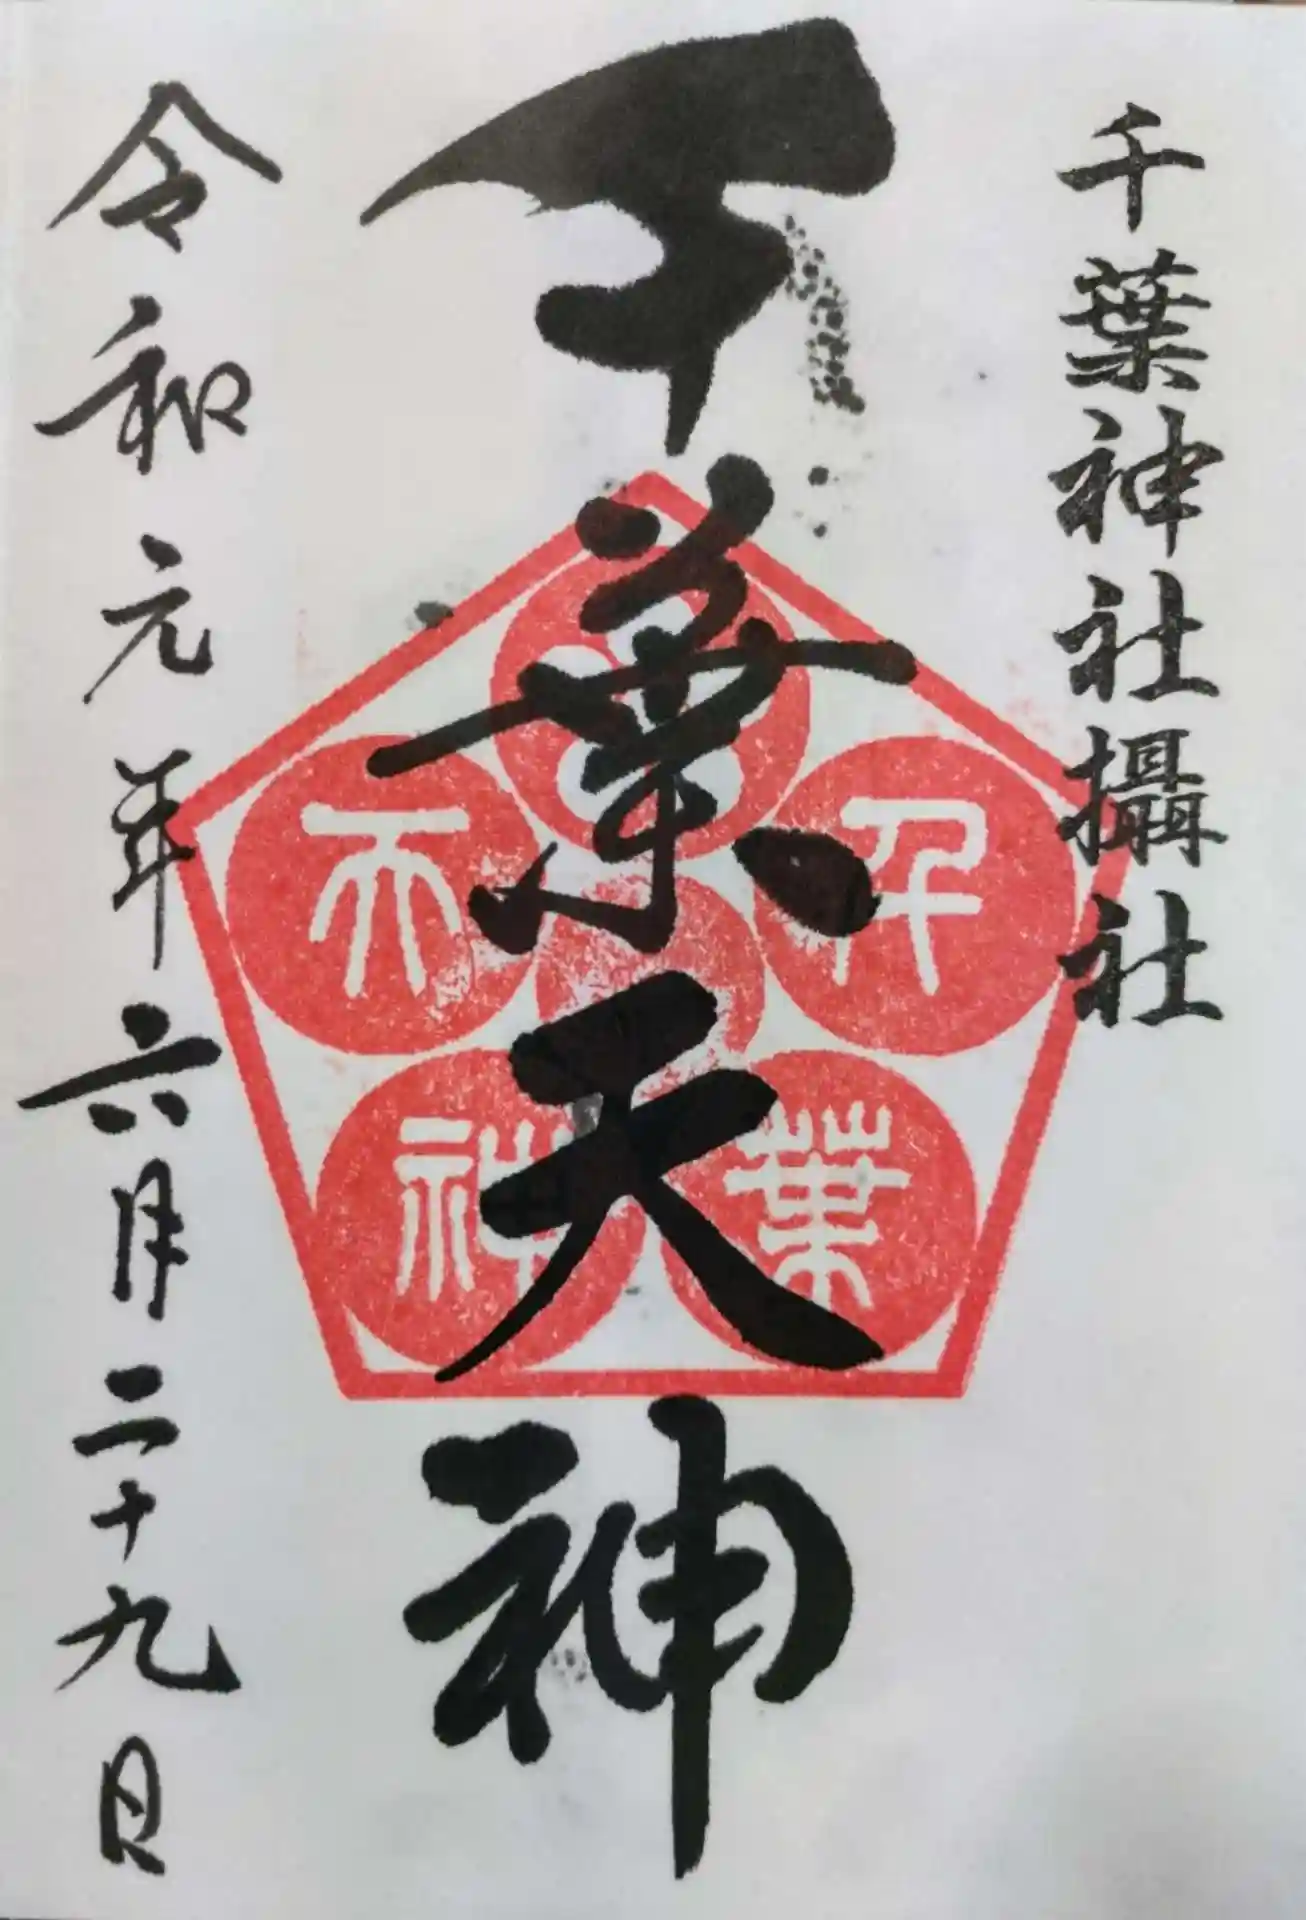 千葉神社攝社
千葉天神
千葉天神
令和元年六月二十九日